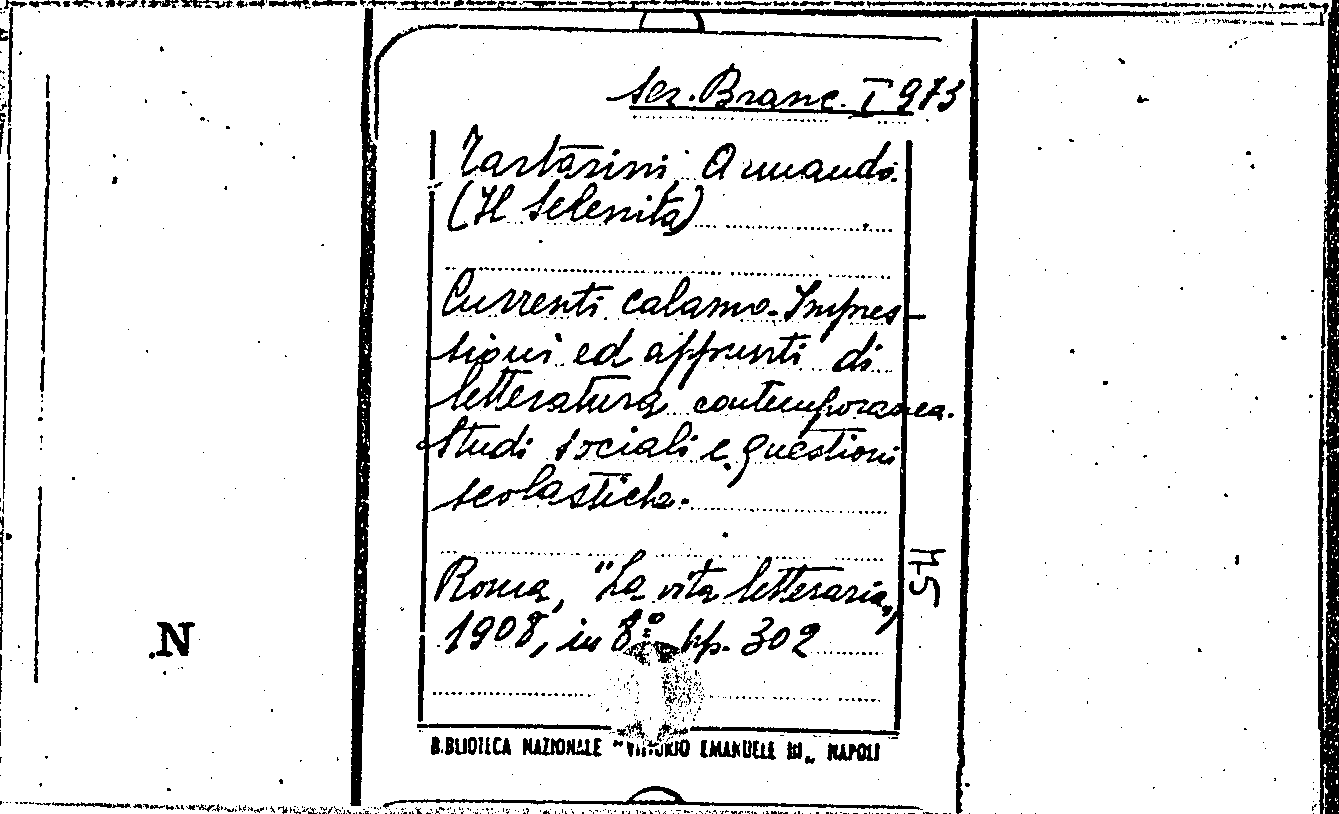 Sez. Branc. I 973
Tartarini Armando.
(Il Selenita)
Currenti calamo. Impres-
sioni ed appunti di
letteratura contemporanea.
Studi sociali e questioni
scolastiche.
Roma, "La vita letteraria„
1908, in 8.º pp. 302
N
BIBLIOTECA NAZIONALE "VITTORIO EMANUELE III„ NAPOLI